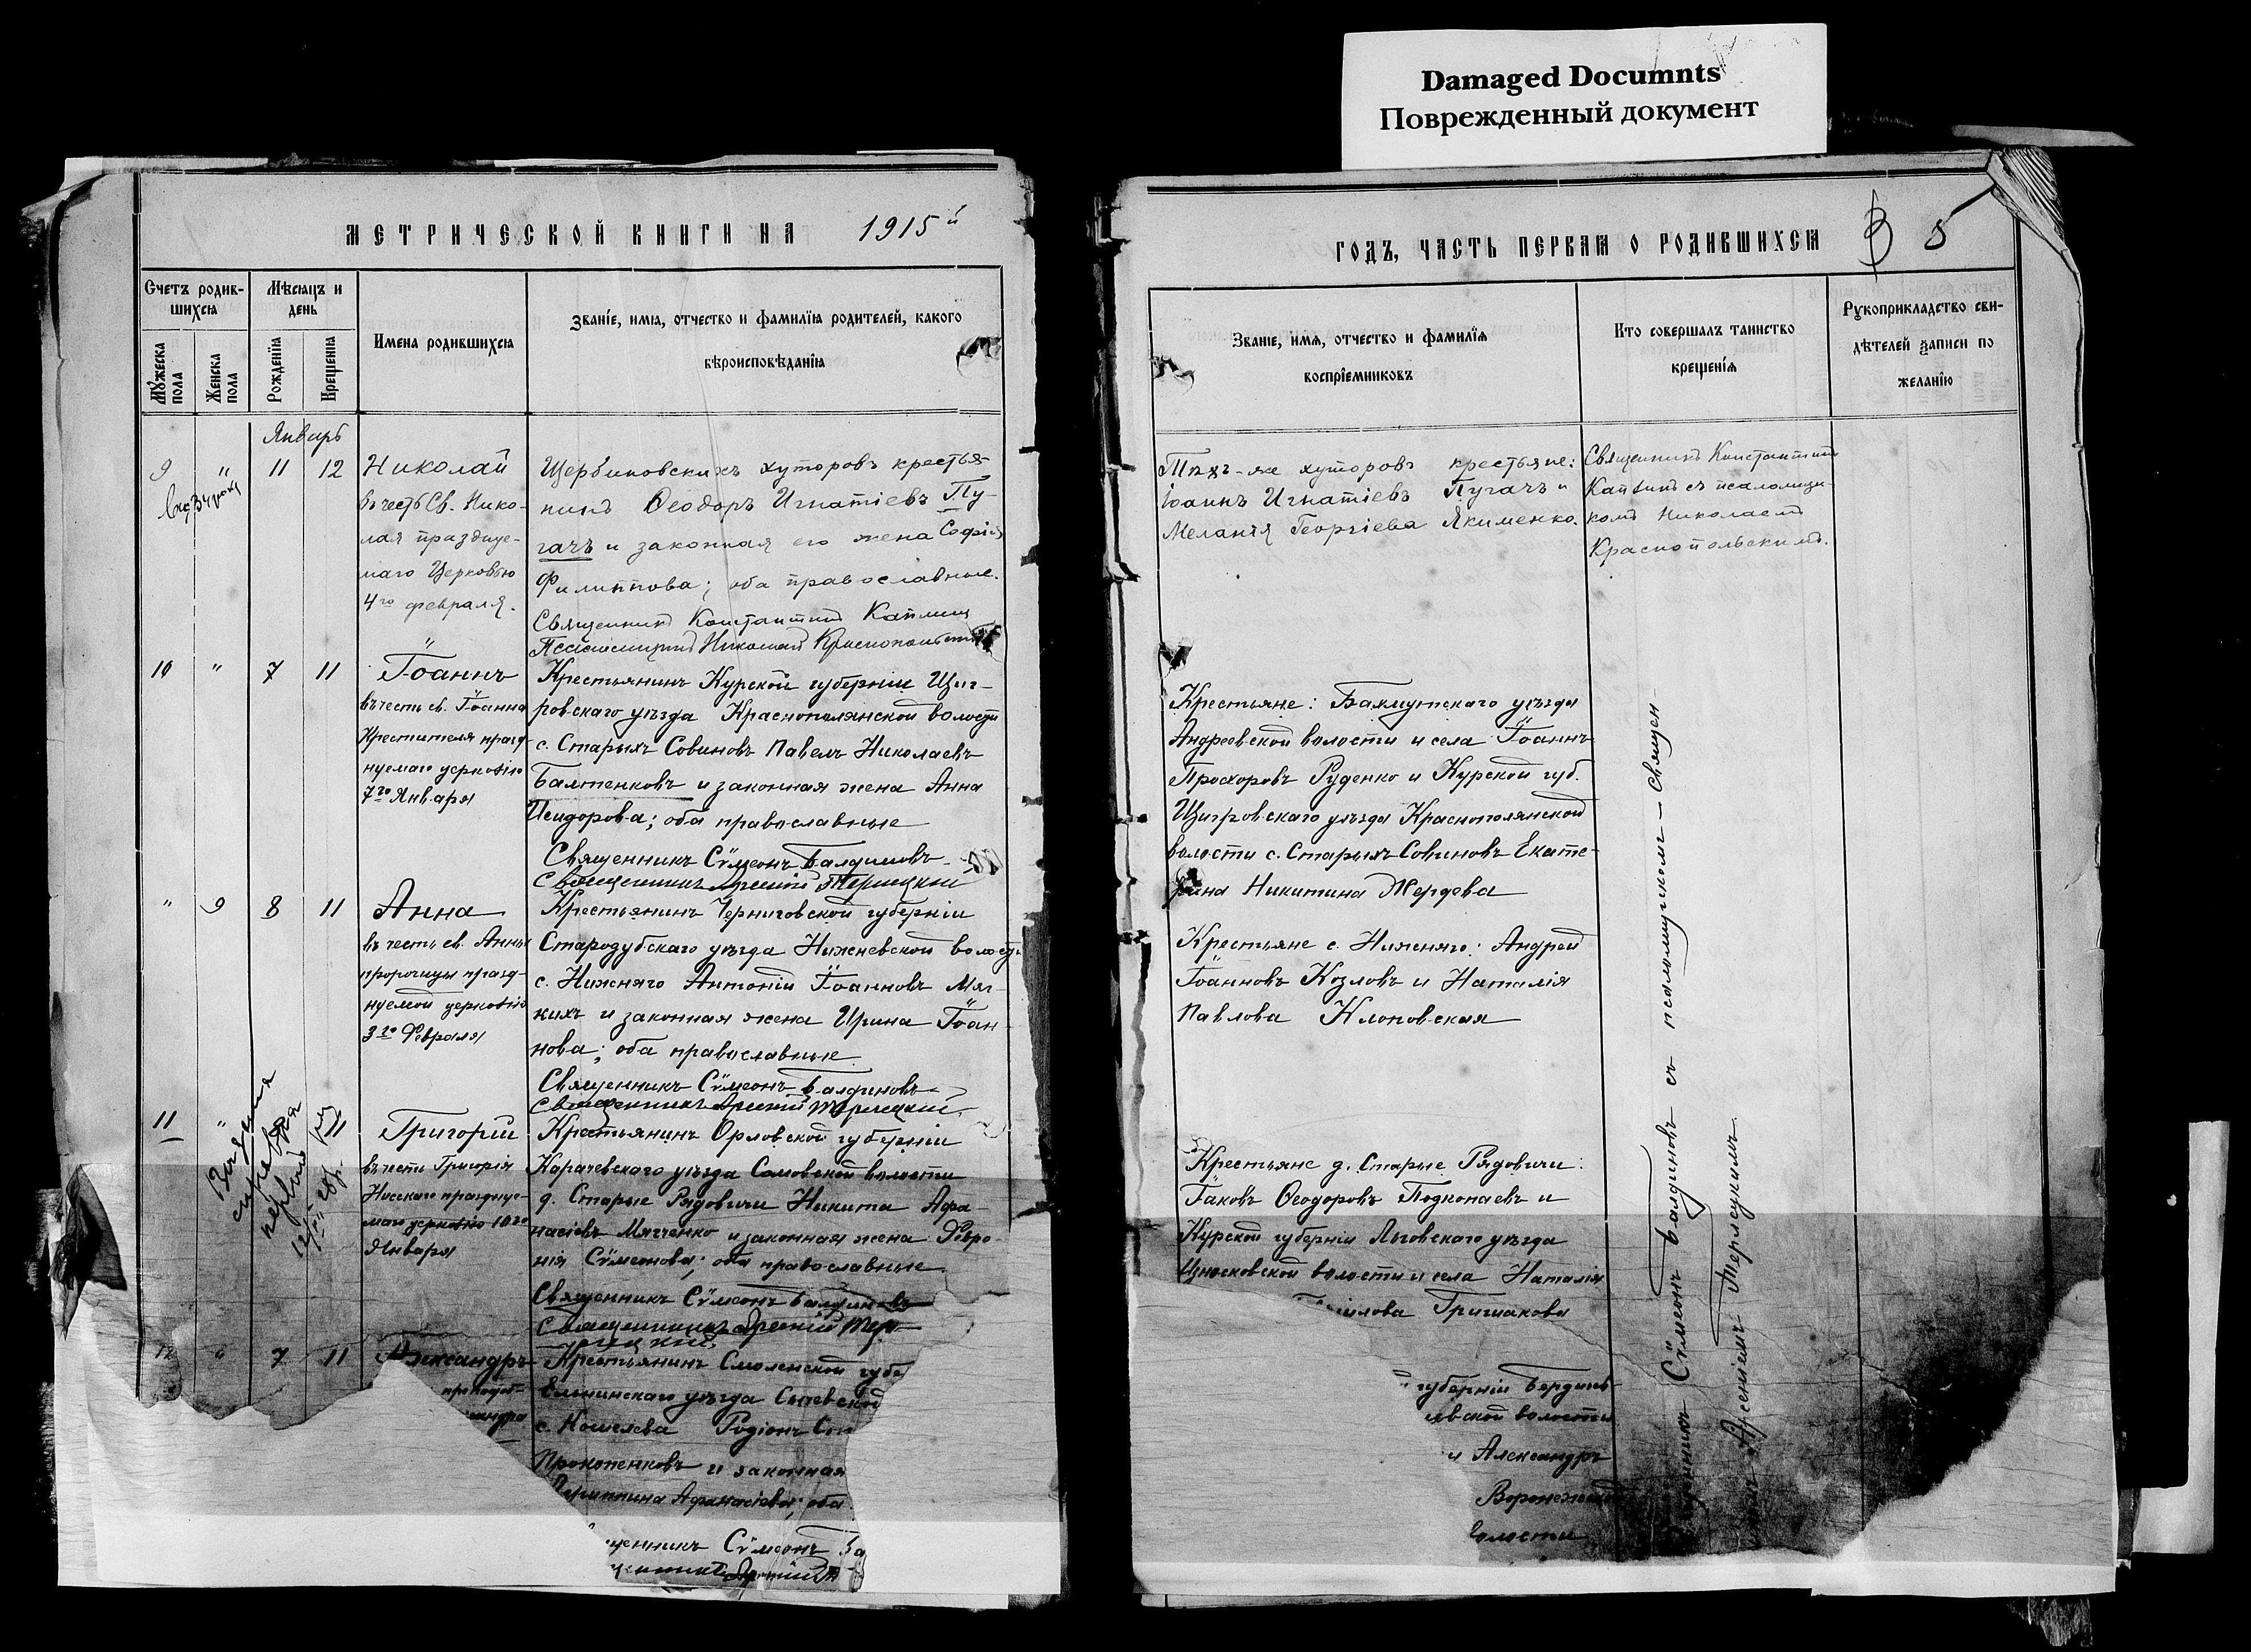 Damaged Documnts
Поврежденный документ
МЕТРИЧЕСКОЙ КНИГИ НА 1915й
Счетъ родив-
шихся
Мѣсяцъ и
день
Имена родившихся
Званіе, имя, отчество и фамилія родителей, какого
вѣроисповѣданія
Мужеска пола
Женска пола
Рожденія
Крещенія
Январь
9 " 11 12 Николай
въ честь Св. Нико-
лая праздну-
маго Церковью
4го февраля.
Щербиновскихъ хуторовъ крестья-
нинъ Ѳеодоръ Игнатіевъ Пу-
гачъ и законная его жена Софія
Филиппова; оба православные.
Священникъ Константинъ
Псаломщикъ Николай Краснопольскій
10 " 7 11 Іоаннъ
въ честь св. Іоанна
Крестителя празд-
нуемаго церковію
7го Января
Крестьянинъ Курской губерніи Щиг-
ровскаго уѣзда Краснополянской волости
с. Старыхъ Совиновъ Павелъ Николаевъ
Балтенковъ и законная жена Анна
Исидорова; оба православные
Священникъ Сѵмеонъ Балдиновъ
Священникъ Арсеній Терлецкій
" 9 8 11 Анна
въ честь св. Анны
пророчицы празд-
нуемой церковію
3го Февраля
Крестьянинъ Черниговской губерніи
Стародубскаго уѣзда Нижневской волости
с. Нижняго Антоній Іоанновъ Мяг-
кихъ и законная жена Ирина Іоан-
нова; оба православные
Священникъ Сѵмеонъ Балдиновъ
Священникъ Арсеній Терлецкій
11 " 11 Григорій
въ честь Григорія
Нисскаго праздну-
маго церковію 10го
Января
Крестьянинъ Орловской губерніи
Карачевскаго уѣзда Самовской волости
д. Старые Рядовичи Никита Афа-
насіевъ Мягченко и законная жена Февро-
нія Сѵмеонова; оба православные
Священникъ Сѵмеонъ Балдиновъ
Священникъ Арсеній Тер-
лецкій
12 " 7 11 Александръ
преподоб-
сандра
Крестьянинъ Смоленской губе
Ельнинскаго уѣзда
с. Кошелева Родіонъ
Прокопенковъ и законная
Афанасіева; оба
щенникъ Сѵмеонъ Ба
Арсеній
ГОДЪ, ЧАСТЬ ПЕРВАЯ О РОДИВШИХСЯ 5
Званіе, имя, отчество и фамилія
воспріемниковъ
Кто совершалъ таинство
крещенія
Рукоприкладство сви-
дѣтелей записи по
желанію
Тѣхъ-же хуторовъ крестьяне:
Іоаннъ Игнатіевъ Пугачъ и
Меланія Георгіева Якименко.
Священникъ Константинъ
съ псаломщи-
комъ Николаемъ
Краснопольскимъ.
Крестьяне: Бахмутскаго уѣзда
Андреевской волости и села Іоаннъ
Прохоровъ Руденко и Курской губ.
Щигровскаго уѣзда Краснополянской
волости с. Старыхъ Совиновъ Екате-
рина Никитина Жердева
Крестьяне с. Нижняго: Андрей
Іоанновъ Козловъ и Наталія
Павлова Клоповская
Крестьяне д. Старые Рядовичи:
Іаковъ Ѳеодоровъ Подкопаевъ и
Курской губерніи Льговскаго уѣзда
Износковской волости и села Наталія
Гришакова
губерніи Бердянь-
евской волости
и Александръ
Воронежск
волости
Священникъ Сѵмеонъ Балдиновъ съ псаломщикомъ — священ-
Арсеніемъ Терлецкимъ